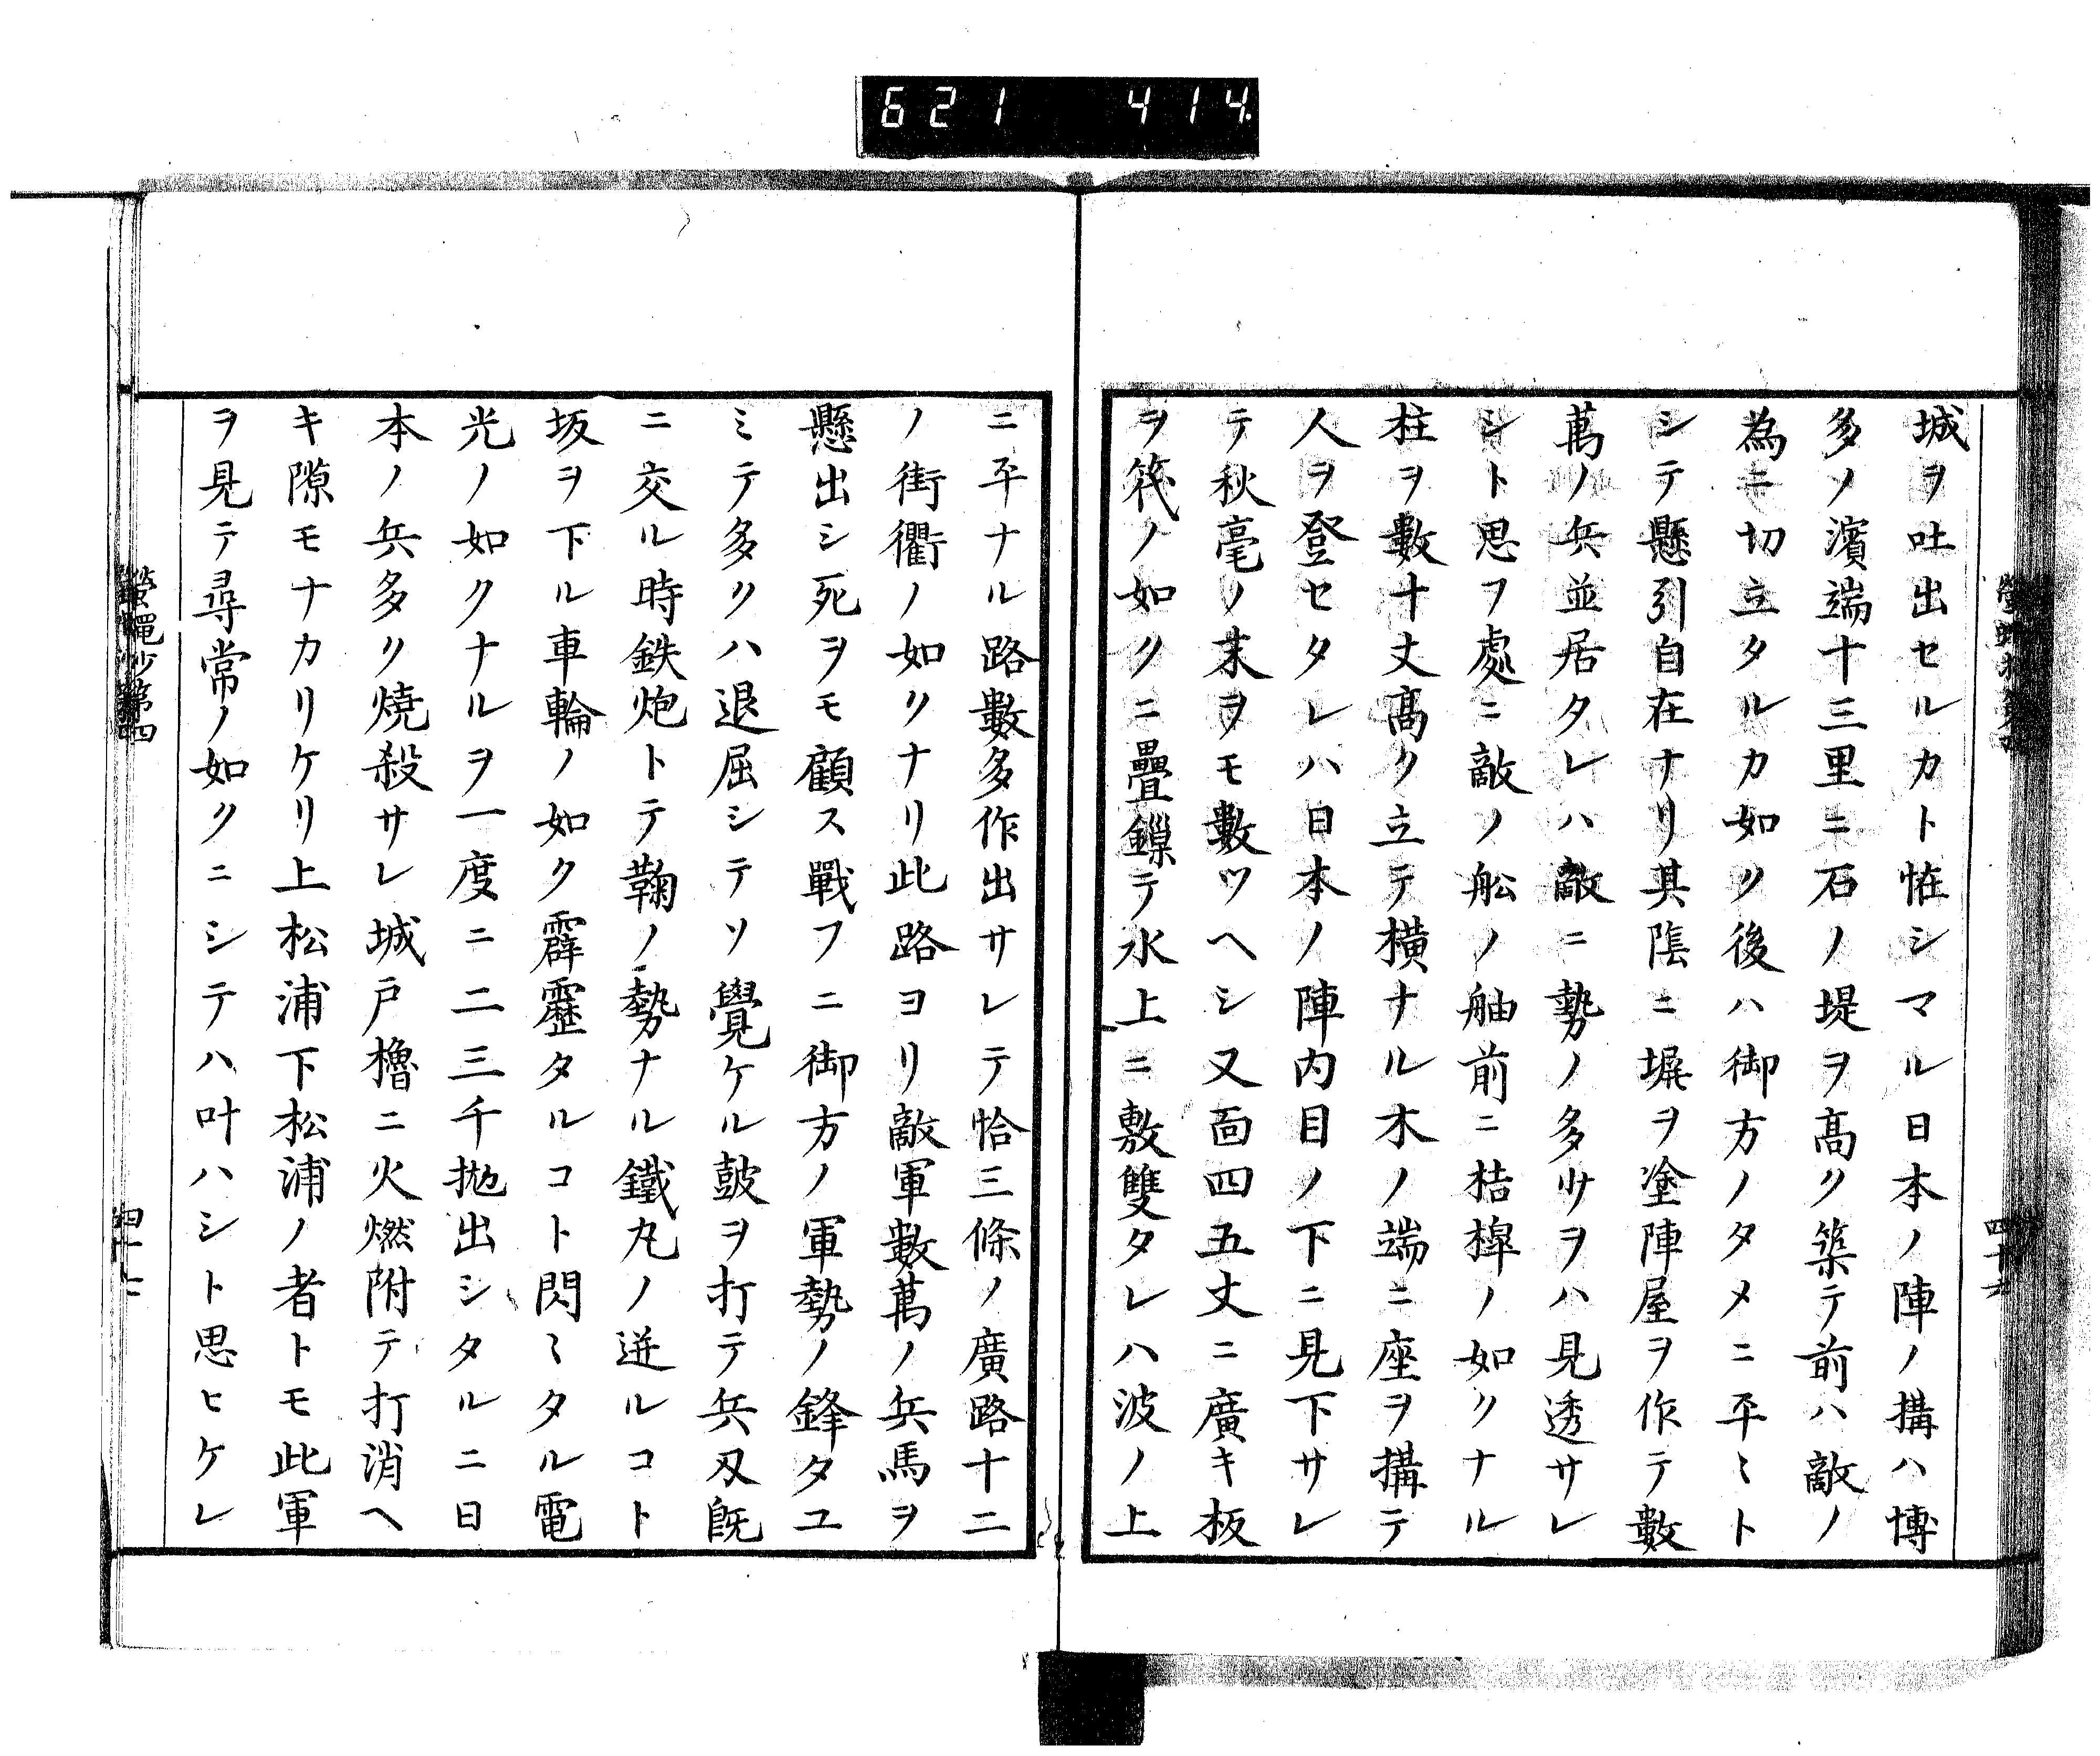 621 414
城ヲ吐出セルカト恠シマル日本ノ陣ノ搆ハ博
多ノ濱端十三里ニ石ノ堤ヲ髙ク築テ前ハ敵ノ
為ニ切立タルカ如ク後ハ御方ノタメニ平ミト
シテ懸引自在ナリ其陰ニ塀ヲ塗陣屋ヲ作テ數
萬ノ兵並居タレハ敵ニ勢ノ多少ヲハ見透サレ
シト思フ處ニ敵ノ舩ノ舳前ニ桔槹ノ如クナル
柱ヲ數十丈髙ク立テ橫ナル木ノ端ニ座ヲ搆テ
人ヲ登セタレハ日本ノ陣内目ノ下ニ見下サレ
テ秋毫ノ末ヲモ數ツヘシ又面四五丈ニ廣キ板
ヲ筏ノ如クニ疊鏁テ水上ニ敷雙タレハ波ノ上
ニ平ナル路數多作出サレテ恰三條ノ廣路十二
ノ街衢ノ如クナリ此路ヨリ敵軍數萬ノ兵馬ヲ
懸出シ死ヲモ顧ス戰フニ御方ノ軍勢ノ鋒タユ
ミテ多クハ退屈シテソ覺ケル皷ヲ打テ兵刄旣
ニ交ル時鉄炮トテ鞠ノ勢ナル鐵丸ノ迸ルコト
坂ヲ下ル車輪ノ如ク霹靂タルコト閃ミタル電
光ノ如クナルヲ一度ニ二三千拋出シタルニ日
本ノ兵多ク燒殺サレ城戸櫓ニ火燃附テ打消ヘ
キ隙モナカリケリ上松浦下松浦ノ者トモ此軍
ヲ見テ尋常ノ如クニシテハ叶ハシト思ヒケレ
螢蠅抄第四